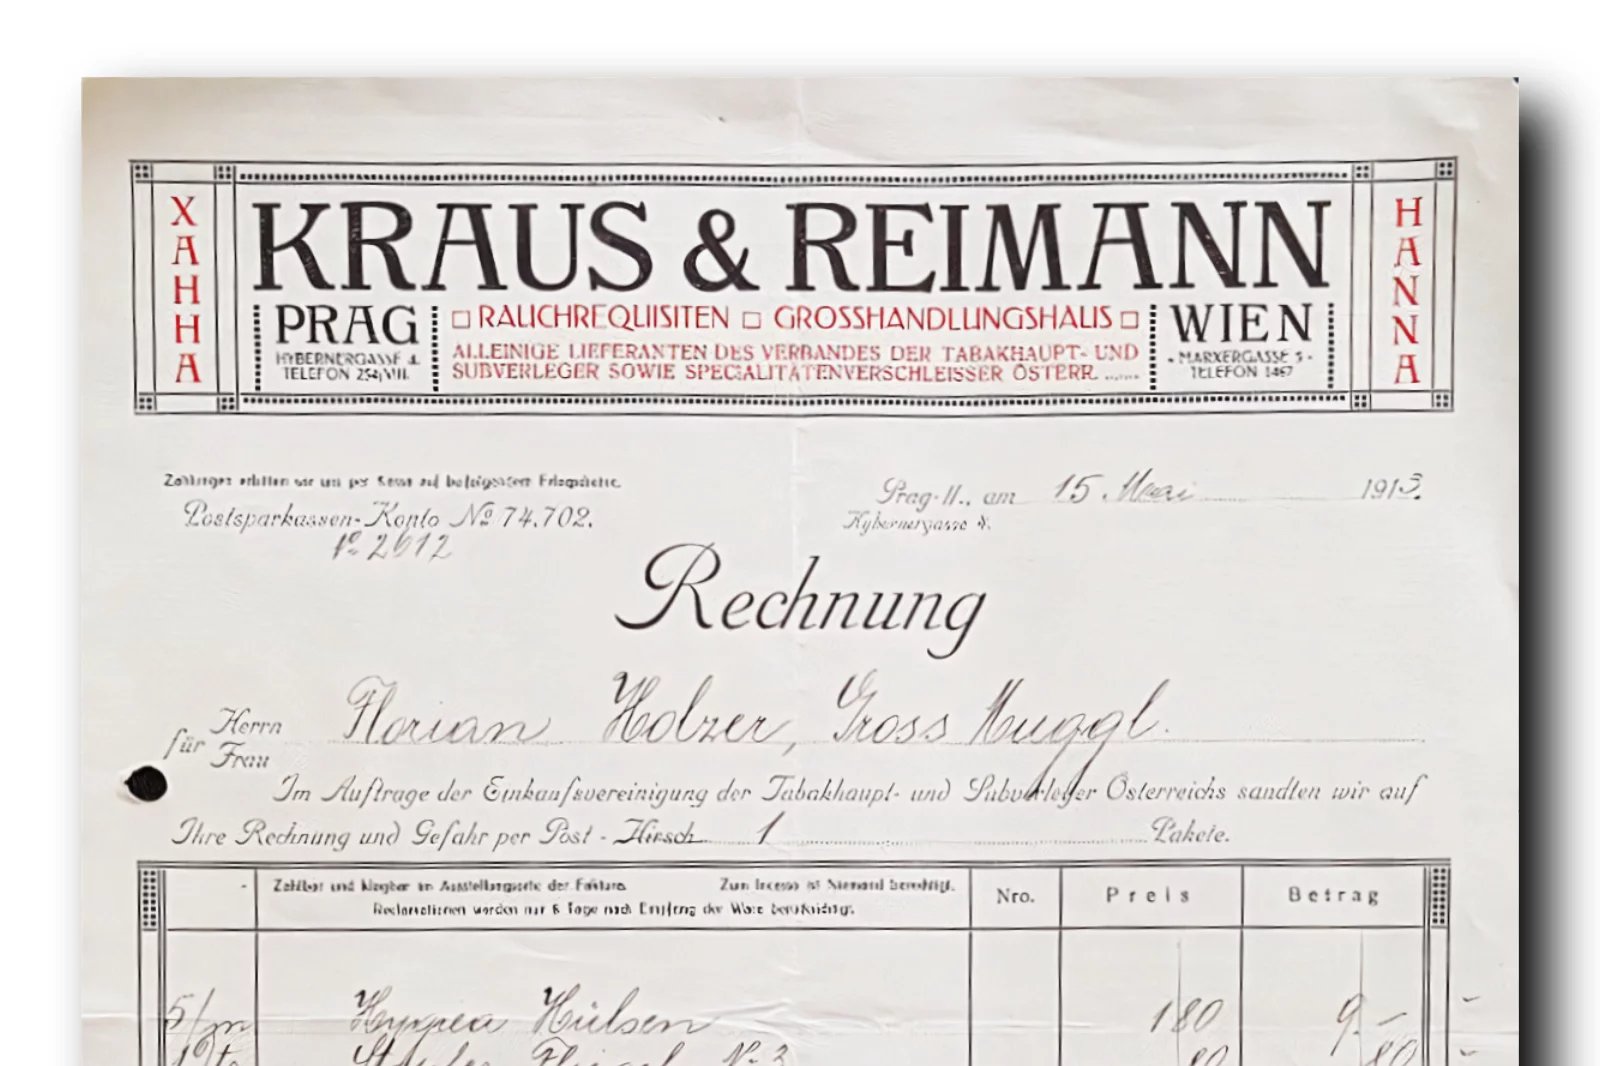 XAHHA
KRAUS & REIMANN
HANNA
PRAG
HYBERNERGASSE 4.
TELEFON 254/VIII.
□ RAUCHREQUISITEN □ GROSSHANDLUNGSHAUS □
ALLEINIGE LIEFERANTEN DES VERBANDES DER TABAKHAUPT- UND
SUBVERLEGER SOWIE SPECIALITÄTENVERSCHLEISSER ÖSTERR.
WIEN
- MARXERGASSE 5 -
TELEFON 1467
Zahlungen erbitten wir uns per Kassa auf
Postsparkassen-Konto No 74.702.
No 2612
Prag-II., am 15. Mai 1913.
Hybernergasse 4.
Rechnung
für Herrn Frau Florian Holzer, Gross Muggl.
Im Auftrage der Einkaufsvereinigung der Tabakhaupt- und Subverleger Österreichs sandten wir auf
Ihre Rechnung und Gefahr per Post - Hirsch 1 Pakete.
Zahlbar und klagbar im Ausstellungsorte der Faktura. Zum Incasso ist Niemand berechtigt.
Reclamationen werden nur 8 Tage nach Empfang der Ware berücksichtigt.
Nro.
Preis
Betrag
5/m Hygiea Hülsen 180 9.-
No 3 80